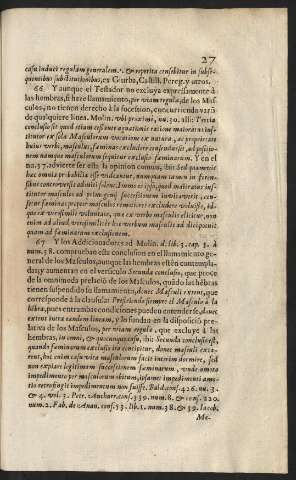 27
casu induct regulam generalem. &c. & repetita censebitur in subse-
quentibus substitutionibus, ex Giurba, Castill. Pereg. y otros.
66 Y aunque el Testador no excluya expressamente à
las hembras, si haze llamamiento, per viam regulæ, de los Mas-
culos, no tienen derecho à la sucession, concurriendo varõ
de qualquiere linea. Molin. vbi proximè, nu. 30. illi: Tertia
conclusio sit quod etiam cessante agnationis ratione maioratus ins-
titutor ex sola Masculorum vocatione ex natura, ac proprietate
huius verbi, masculus, faminæ excludere censendus sit, ad
nem namque masculorum sequitur exclusio fæminarum. Y en el
nu. 37. advierte ser esta la opinion comun, ibi: Sed quamvis
hæc omnia probabilia esse videantur, nunquam tamen in foren-
sibus controversijs admitti solent. Immo eo ipso, quod maioratus ins-
titutor masculos ad primogenij successionem invitaverit, cen-
setur fæminas propter masculos remotiores excludere voluisse,
que ex verosimili voluntate, quæ ex verbo masculis elicitur, non
enim ad aliud verisimiliter hæc verba ad masculos
quam ad fæminarum exclusionem.
67 Y los Addicionadores ad Molin. d. lib. 3. cap. 5. à
num. 38. comprueban esta conclusion en el llamamiento ge-
neral de los Masculos, aunque las hembras estèn contempla-
das; y aumentan en el versiculo Secunda conclusio, que proce-
da la omnimoda prelaciõ de los Masculos, quãdo las hẽbras
tienen suspendido su llamamiento, donec Masculi extent, que
corresponde à la clausula: Prefiriendo siempre el Masculo à la
hẽbra, pues entrambas condiciones pueden entenderse, donec
extent intra eandem lineam, y la fundan en la disposiciõ pre-
lativa de los Masculos, per viam regulæ, que excluye à las
hembras, in omni, & quocunque casu, ibi: Secunda conclusio est,
quando fæminarum exclusio ita concipitur, donec masculi exta-
rent, hoc enim casu vita masculorum facit interim dormire, sed
non expirare legitimam successionem fæminarum, unde amoto
impedimento per masculorum obitum, ipsarum impedimenti amo-
tio retrotrahit impedimentum non fuisse. Bald. cons. 426. nu. 3.
& 4. vol. 3. Petr. Ancharr. cons. 339. num. 8. & cons. 220.
num. 2. Fab. de Anan. cons. 53. lib. 1. num. 38. & 39. Iacob.
Me-